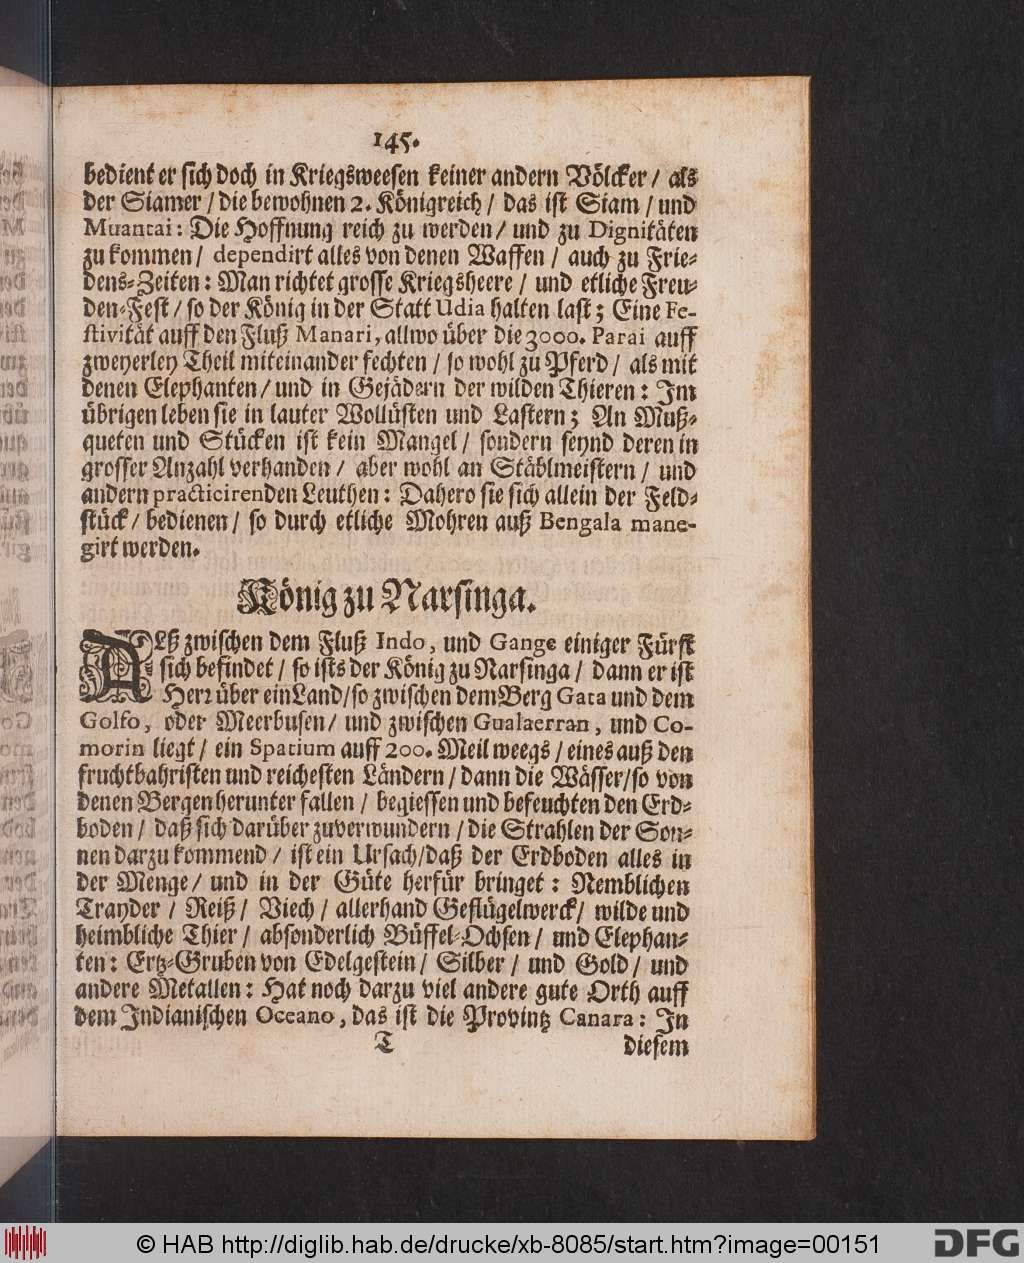 145.
bedient er sich doch in Kriegsweesen keiner andern Völcker / als
der Siamer / die bewohnen 2. Königreich / das ist Siam / und
Muantai: Die Hoffnung reich zu werden / und zu Dignitäten
zu kommen / dependirt alles von denen Waffen / auch zu Frie-
dens-Zeiten: Man richtet grosse Kriegsheere / und etliche Freu-
den-Fest / so der König in der Statt Udia halten last; Eine Fe-
stivität auff den Fluß Manari, allwo über die 3000. Parai auff
zweyerley Theil miteinander fechten / so wohl zu Pferd / als mit
denen Elephanten / und in Gejädern der wilden Thieren: Im
übrigen leben sie in lauter Wollüsten und Lastern; An Muß-
queten und Stücken ist kein Mangel / sondern seynd deren in
grosser Anzahl verhanden / aber wohl an Stäblmeistern / und
andern practicirenden Leuthen: Dahero sie sich allein der Feld-
stück / bedienen / so durch etliche Mohren auß Bengala mane-
girt werden.
König zu Narsinga.
ALß zwischen dem Fluß Indo, und Gange einiger Fürst
sich befindet / so ists der König zu Narsinga / dann er ist
Herr über ein Land / so zwischen dem Berg Gata und dem
Golfo, oder Meerbusen / und zwischen Gualaerran, und Co-
morin liegt / ein Spatium auff 200. Meil weegs / eines auß den
fruchtbahristen und reichesten Ländern / dann die Wässer / so von
denen Bergen herunter fallen / begiessen und befeuchten den Erd-
boden / daß sich darüber zuverwundern / die Strahlen der Son-
nen darzu kommend / ist ein Ursach / daß der Erdboden alles in
der Menge / und in der Güte herfür bringet: Nemblichen
Trayder / Reiß / Viech / allerhand Geflügelwerck / wilde und
heimbliche Thier / absonderlich Büffel-Ochsen / und Elephan-
ten: Ertz-Gruben von Edelgestein / Silber / und Gold / und
andere Metallen: Hat noch darzu viel andere gute Orth auff
dem Indianischen Oceano, das ist die Provintz Canara: In
T diesem
© HAB http://diglib.hab.de/drucke/xb-8085/start.htm?image=00151
DFG